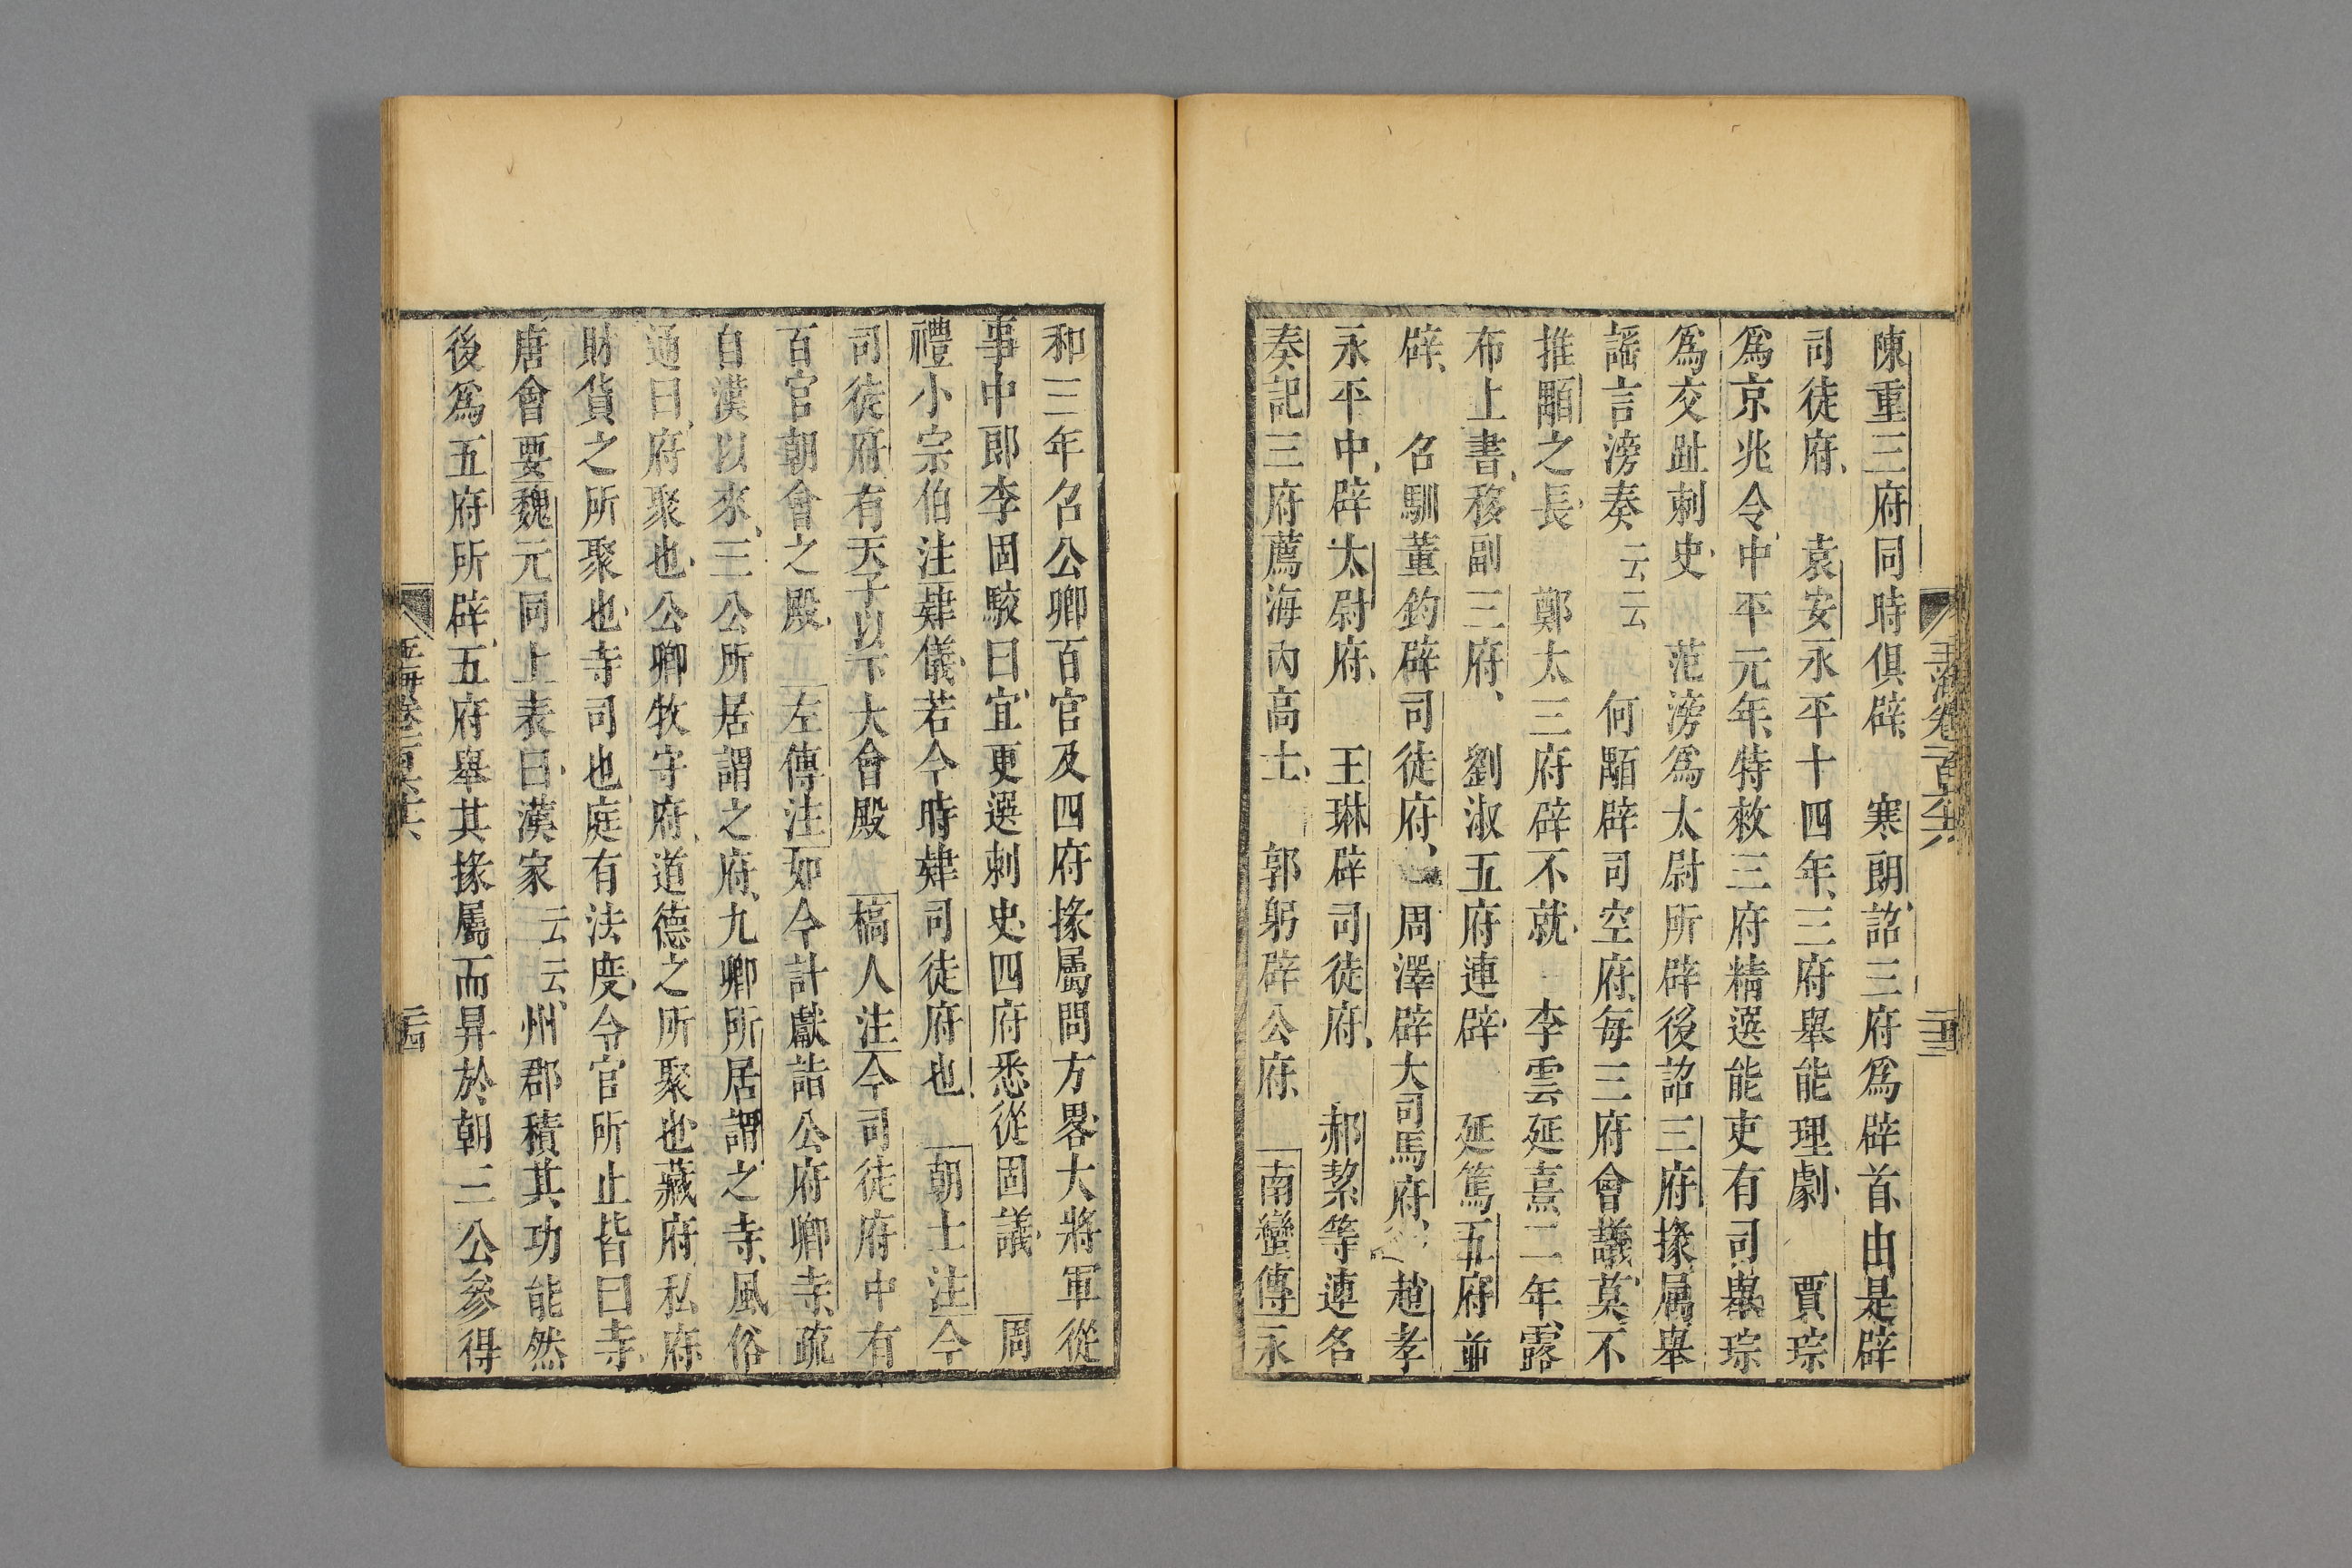 陳重三府同時俱辟 寒朗詔三府爲辟首由是辟
司徒府 袁安永平十四年三府舉能理劇 賈琮
爲京兆令中平元年特敕三府精選能吏有司舉琮
爲交趾刺史 范滂爲太尉所辟後詔三府掾属舉
謡言滂奏云云 何顒辟司空府每三府會議莫不
推顒之長 鄭太三府辟不就 李雲延熹二年露
布上書移副三府 劉淑五府連辟 延篤五府並
辟 召馴董鈞辟司徒府 周澤辟大司馬府 趙孝
永平中辟太尉府 王琳辟司徒府 郝絜等連名
奏記三府薦海內高士 郭躬辟公府 南蠻傳永
和三年召公卿百官及四府掾屬問方畧大將軍從
事中郎李固駮曰宜更選刺史四府悉從固議 周
禮小宗伯注肄儀若今時肄司徒府也 朝士注今
司徒府有天子以下大會殿 槁人注今司徒府中有
百官朝會之殿 左傳注如今計獻詣公府卿寺疏
自漢以來三公所居謂之府九卿所居謂之寺風俗
通曰府聚也公卿牧守府道德之所聚也藏府私府
財貨之所聚也寺司也庭有法度令官所止皆曰寺
唐會要魏元同上表曰漢家云云州郡積其功能然
後爲五府所辟五府舉其掾屬而昇於朝三公參得